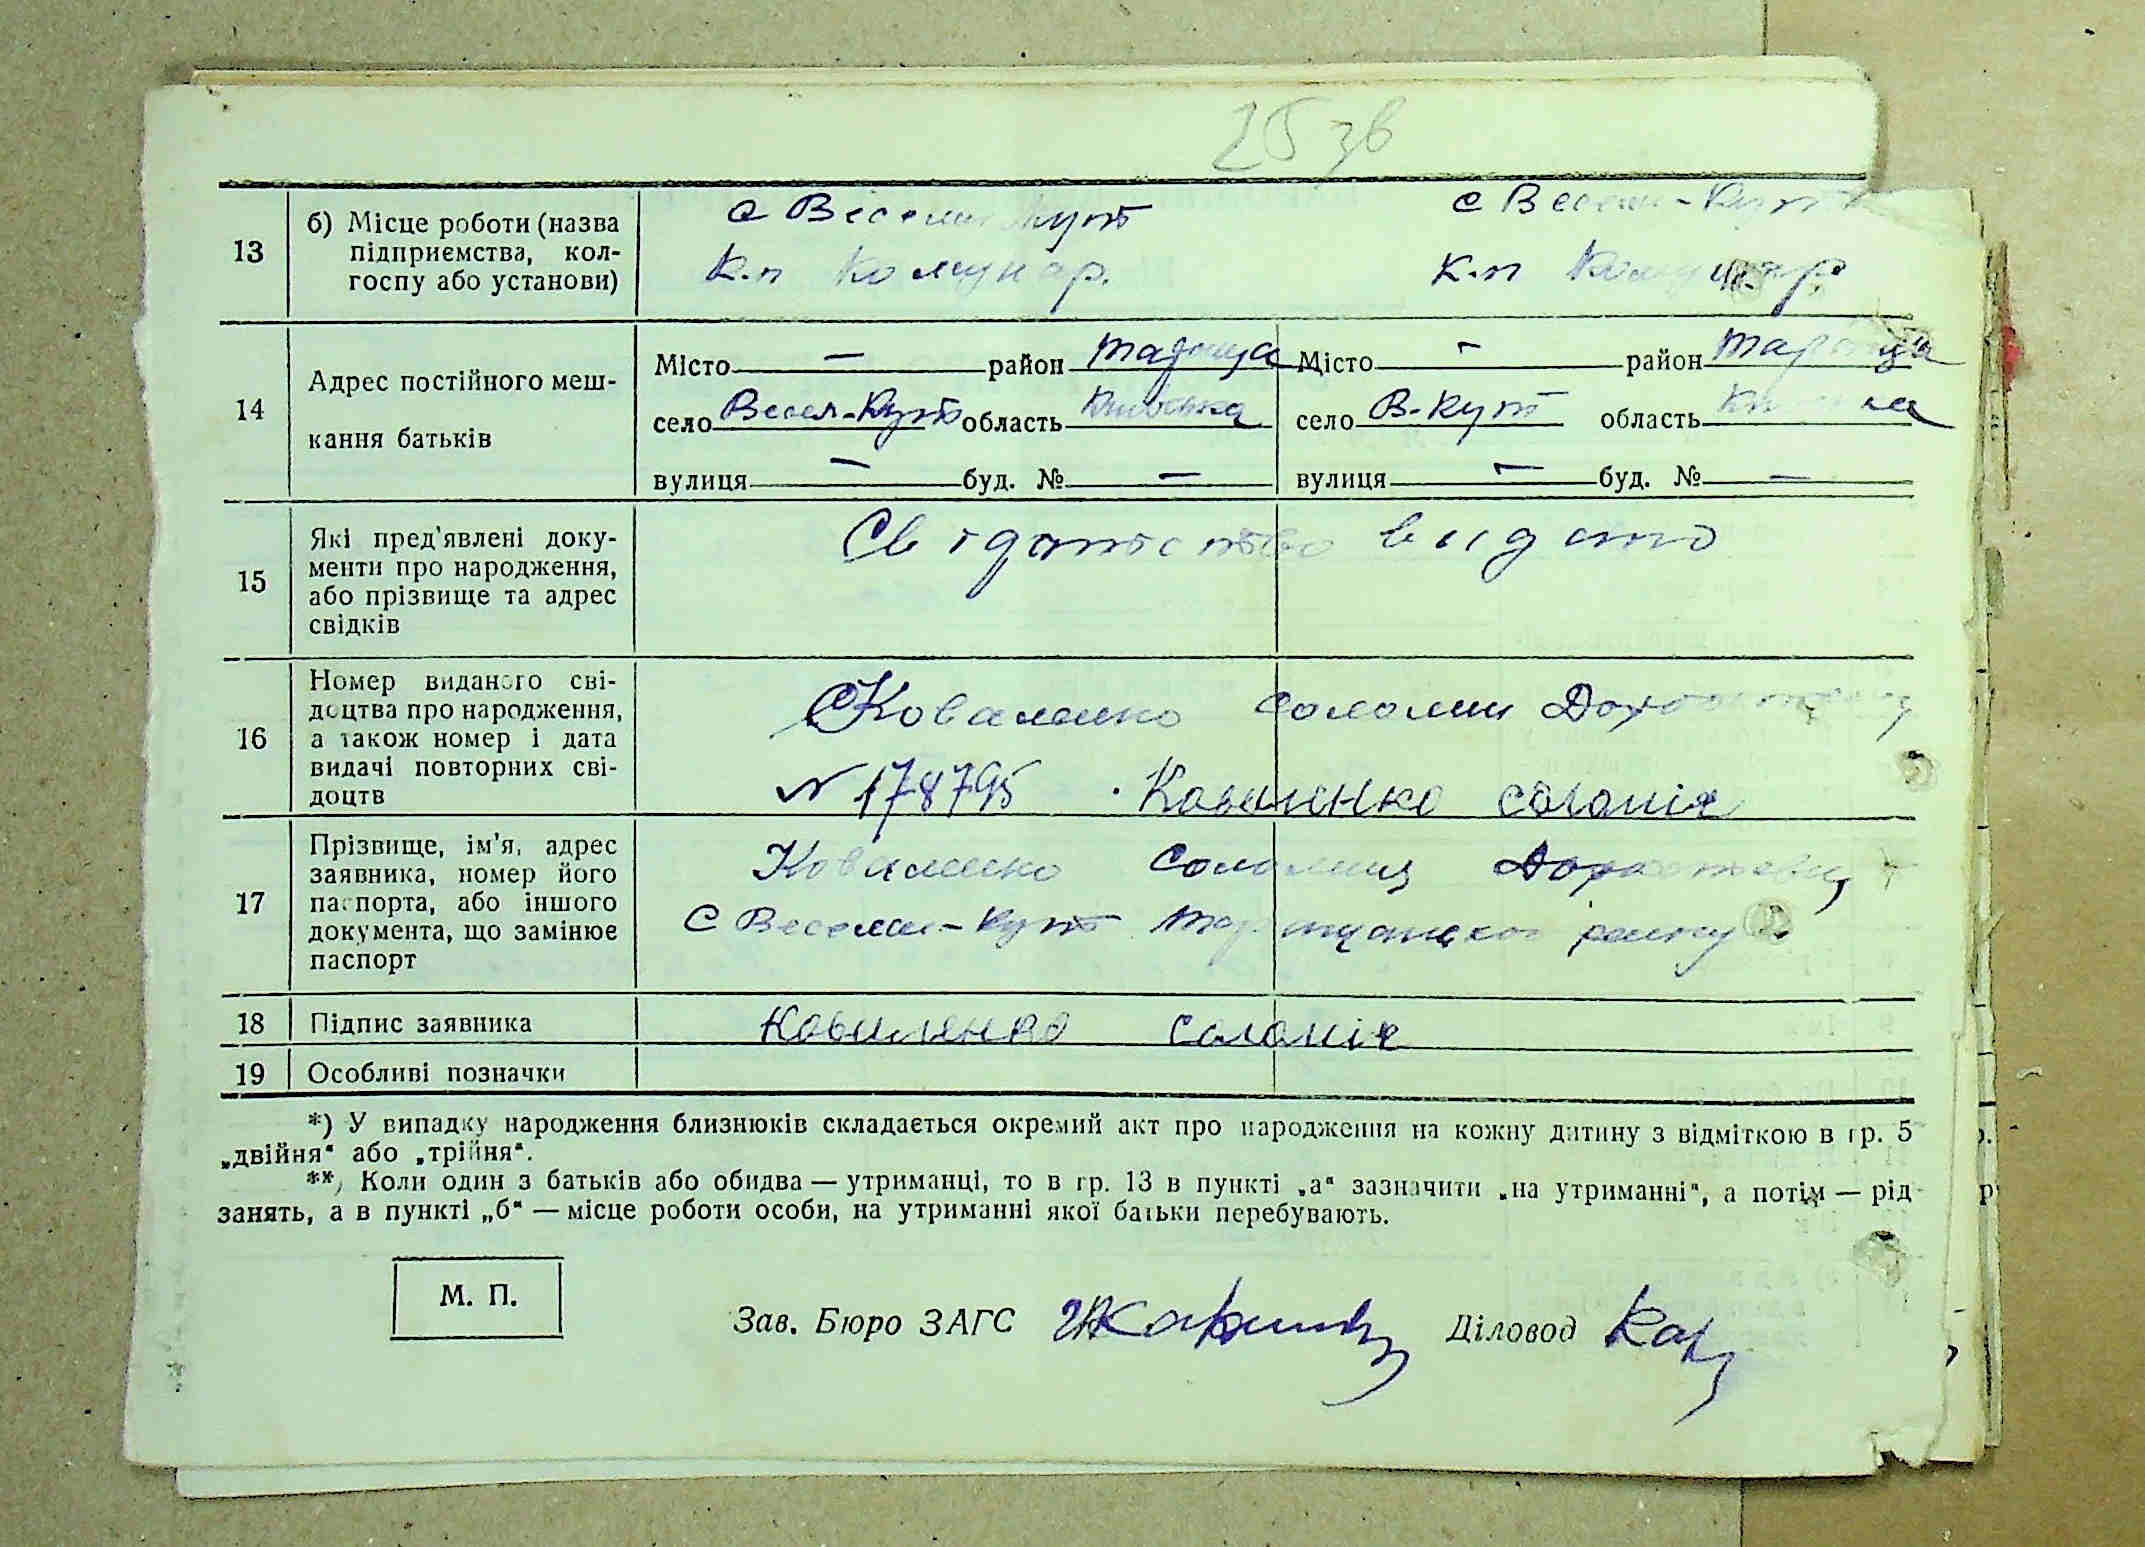 25 зв
13
б) Місце роботи (назва підприємства, кол-
госпу або установи)
с Весели Кут
К.п Комунар.
с Весели-Кут
К.п Комунар
14
Адрес постійного меш-
кання батьків
Місто — район Тараща
село Весел-Кут область Київська
вулиця — буд. № —
Місто — район Тараща
село В-Кут область
вулиця — буд. № —
15
Які пред'явлені доку-
менти про народження,
або прізвище та адрес
свідків
видано
16
Номер виданого сві-
доцтва про народження,
а також номер і дата
видачі повторних сві-
доцтв
Коваленко Соломии
№ 178795 Коваленко Соломія
17
Прізвище, ім'я, адрес
заявника, номер його
паспорта, або іншого
документа, що замінює
паспорт
Коваленко Соломия
с Весели-Кут
18
Підпис заявника
Коваленко Соломія
19
Особливі позначки
*) У випадку народження близнюків складається окремий акт про народження на кожну дитину з відміткою в гр. 5
„двійня“ або „трійня“.
**) Коли один з батьків або обидва — утриманці, то в гр. 13 в пункті „а“ зазначити „на утриманні“, а потім — рід
занять, а в пункті „б“ — місце роботи особи, на утриманні якої батьки перебувають.
М. П.
Зав. Бюро ЗАГС
Діловод